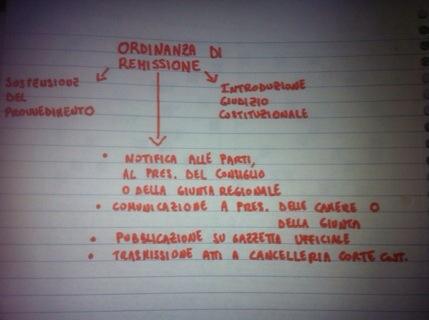 ORDINANZA DI
REMISSIONE
SOSPENSIONE
DEL
PROVVEDIMENTO
INTRODUZIONE
GIUDIZIO
COSTITUZIONALE
• NOTIFICA ALLE PARTI,
AL PRES. DEL CONSIGLIO
O DELLA GIUNTA REGIONALE
• COMUNICAZIONE A PRES. DELLE CAMERE O
DELLA GIUNTA
• PUBBLICAZIONE SU GAZZETTA UFFICIALE
• TRASMISSIONE ATTI A CANCELLERIA CORTE COST.